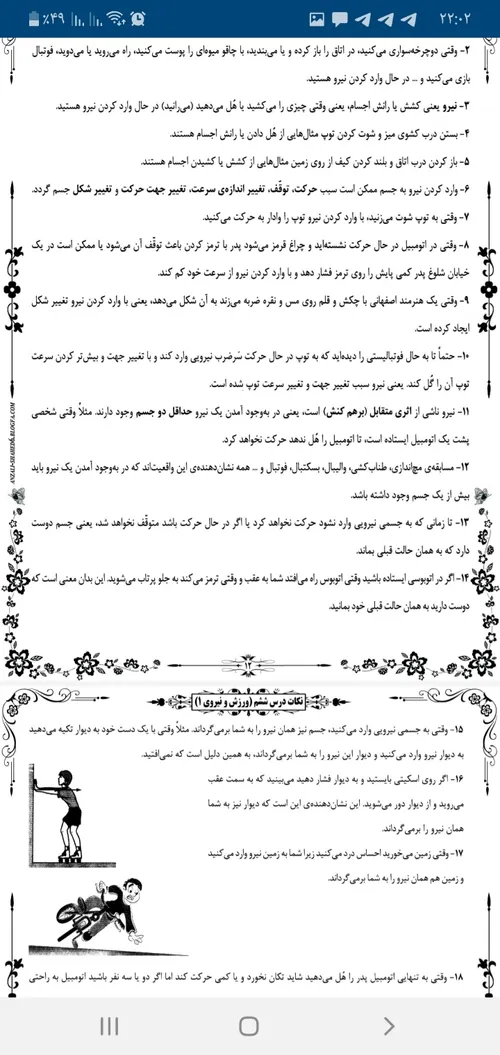 ٪۴۹
۲۲:۰۲
۲- وقتی دوچرخه‌سواری می‌کنید، در اتاق را باز کرده و یا می‌بندید، با چاقو میوه‌ای را پوست می‌کنید، راه می‌روید یا می‌دوید، فوتبال
بازی می‌کنید و ... در حال وارد کردن نیرو هستید.
۳- نیرو یعنی کشش یا رانش اجسام، یعنی وقتی چیزی را می‌کشید یا هُل می‌دهید (می‌رانید) در حال وارد کردن نیرو هستید.
۴- بستن درب کشوی میز و شوت کردن توپ مثال‌هایی از هُل دادن یا رانش اجسام هستند.
۵- باز کردن درب اتاق و بلند کردن کیف از روی زمین مثال‌هایی از کشش یا کشیدن اجسام هستند.
۶- وارد کردن نیرو به جسم ممکن است سبب حرکت، توقّف، تغییر اندازه‌ی سرعت، تغییر جهت حرکت و تغییر شکل جسم گردد.
۷- وقتی به توپ شوت می‌زنید، با وارد کردن نیرو توپ را وادار به حرکت می‌کنید.
۸- وقتی در اتومبیل در حال حرکت نشسته‌اید و چراغ قرمز می‌شود پدر با ترمز کردن باعث توقّف آن می‌شود یا ممکن است در یک
خیابان شلوغ پدر کمی پایش را روی ترمز فشار دهد و با وارد کردن نیرو از سرعت خود کم کند.
۹- وقتی یک هنرمند اصفهانی با چکش و قلم روی مس و نقره ضربه می‌زند به آن شکل می‌دهد، یعنی با وارد کردن نیرو تغییر شکل
ایجاد کرده است.
۱۰- حتماً تا به حال فوتبالیستی را دیده‌اید که به توپ در حال حرکت سَرضرب نیرویی وارد کند و با تغییر جهت و بیش‌تر کردن سرعت
توپ آن را گُل کند. یعنی نیرو سبب تغییر جهت و تغییر سرعت توپ شده است.
۱۱- نیرو ناشی از اثری متقابل (برهم کنش) است، یعنی در به‌وجود آمدن یک نیرو حداقل دو جسم وجود دارند. مثلاً وقتی شخصی
پشت یک اتومبیل ایستاده است، تا اتومبیل را هُل ندهد حرکت نخواهد کرد.
۱۲- مسابقه‌ی مچ‌اندازی، طناب‌کشی، والیبال، بسکتبال، فوتبال و ... همه نشان‌دهنده‌ی این واقعیت‌اند که در به‌وجود آمدن یک نیرو باید
بیش از یک جسم وجود داشته باشد.
۱۳- تا زمانی که به جسمی نیرویی وارد نشود حرکت نخواهد کرد یا اگر در حال حرکت باشد متوقّف نخواهد شد، یعنی جسم دوست
دارد که به همان حالت قبلی بماند.
۱۴- اگر در اتوبوسی ایستاده باشید وقتی اتوبوس راه می‌افتد شما به عقب و وقتی ترمز می‌کند به جلو پرتاب می‌شوید. این بدان معنی است که
دوست دارید به همان حالت قبلی خود بمانید.
۱۲
نکات درس ششم (ورزش و نیروی ۱)
۱۵- وقتی به جسمی نیرویی وارد می‌کنید، جسم نیز همان نیرو را به شما برمی‌گرداند. مثلاً وقتی با یک دست خود به دیوار تکیه می‌دهید
به دیوار نیرو وارد می‌کنید و دیوار این نیرو را به شما برمی‌گرداند، به همین دلیل است که نمی‌افتید.
۱۶- اگر روی اسکیتی بایستید و به دیوار فشار دهید می‌بینید که به سمت عقب
می‌روید و از دیوار دور می‌شوید. این نشان‌دهنده‌ی این است که دیوار نیز به شما
همان نیرو را برمی‌گرداند.
۱۷- وقتی زمین می‌خورید احساس درد می‌کنید زیرا شما به زمین نیرو وارد می‌کنید
و زمین هم همان نیرو را به شما برمی‌گرداند.
۱۸- وقتی به تنهایی اتومبیل پدر را هُل می‌دهید شاید تکان نخورد و یا کمی حرکت کند اما اگر دو یا سه نفر باشید اتومبیل به راحتی